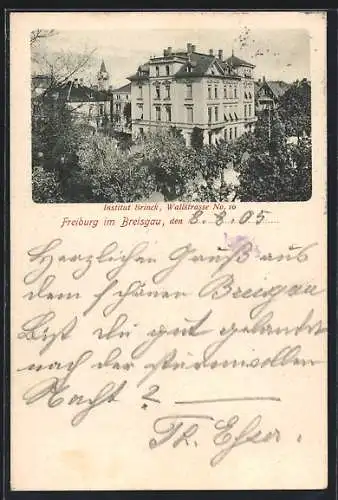 Institut Brinck, Wallstrasse No. 10
Freiburg im Breisgau, den 8. 8. 05
Herzlichen Gruß aus
dem schönen Breisgau
Bist du gut gelandet
nach der stürmisvollen
Nacht ? —
Th. Eßer.